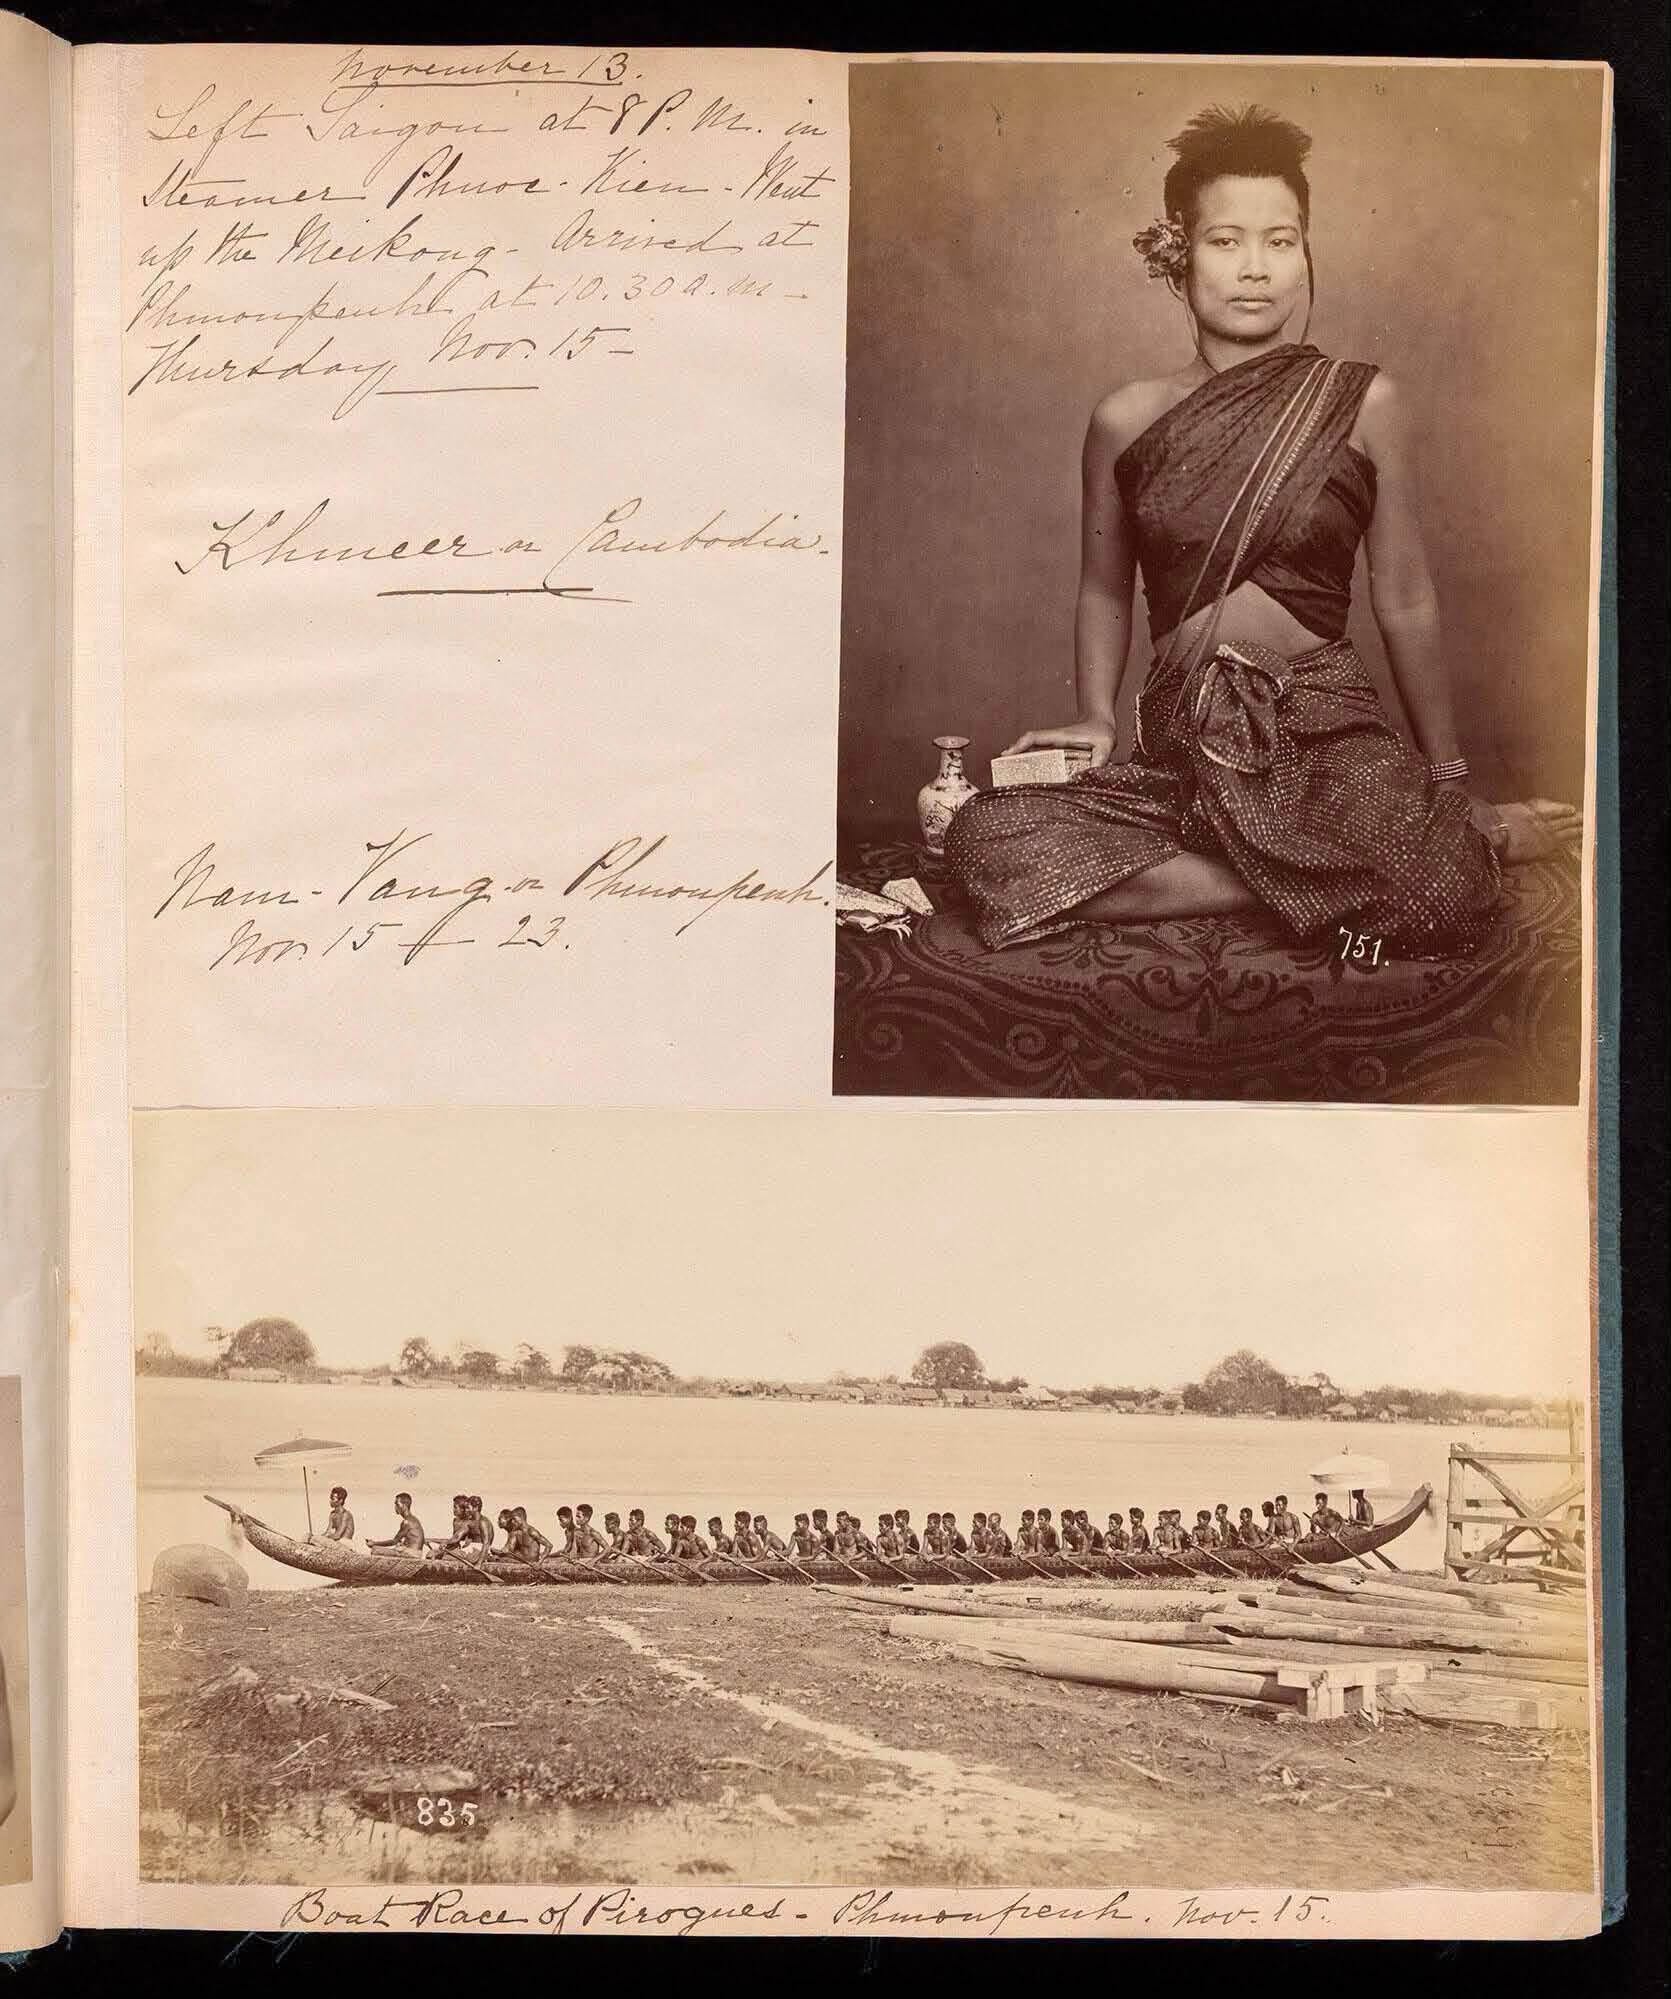 November 13.
Left Saigon at 8 P. M. in
Steamer Phuoc-Kien - Went
up the Meikong - Arrived at
Phnonpenh at 10.30 a.m -
Thursday Nov. 15 -
Khmeer or Cambodia -
Nam-Vang or Phnonpenh.
Nov. 15 - 23.
751.
835
Boat Race of Pirogues - Phnonpenh. Nov. 15.